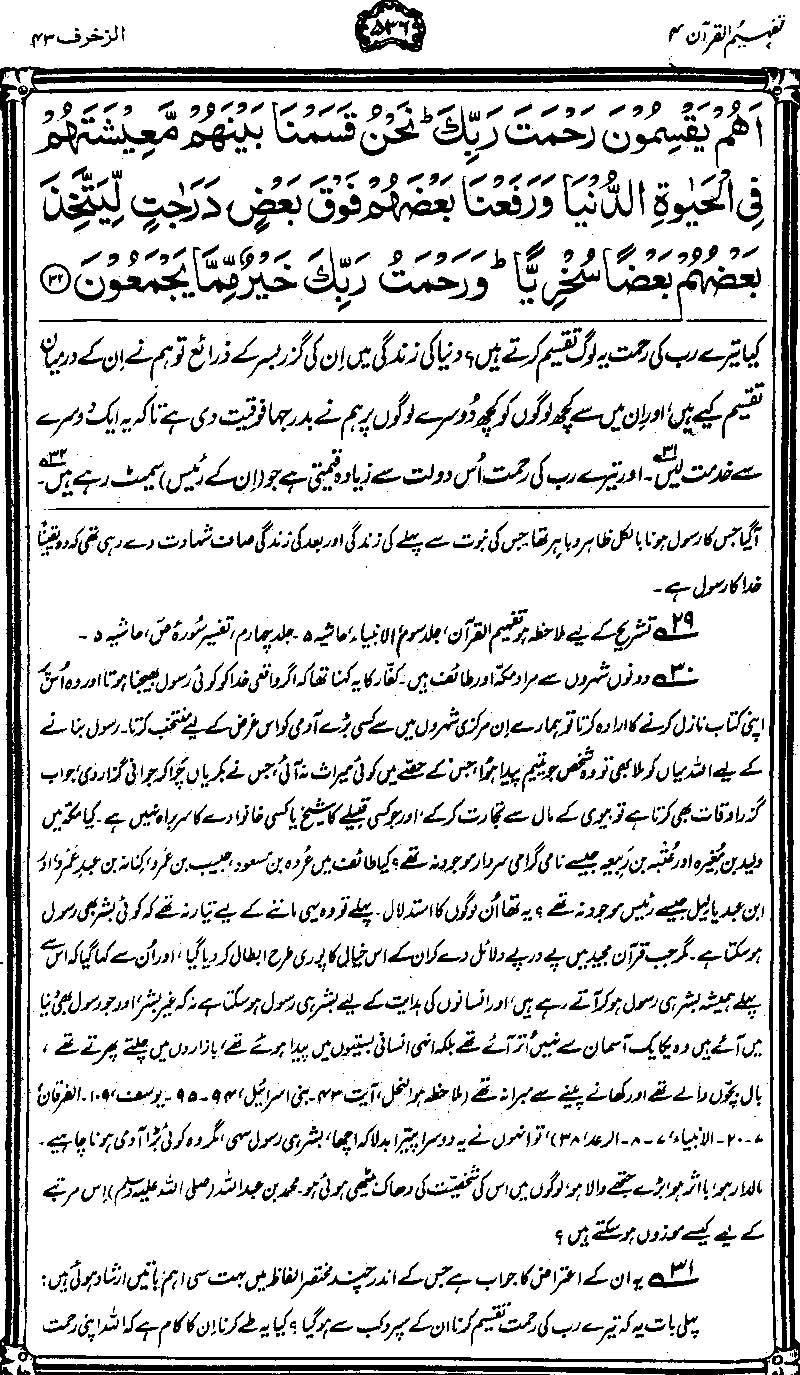 تفہیم القرآن ۴
۵۳۶
الزخرف ۴۳
اَهُمْ يَقْسِمُوْنَ رَحْمَتَ رَبِّكَ ؕ نَحْنُ قَسَمْنَا بَيْنَهُمْ مَّعِيْشَتَهُمْ
فِي الْحَيٰوةِ الدُّنْيَا وَرَفَعْنَا بَعْضَهُمْ فَوْقَ بَعْضٍ دَرَجٰتٍ لِّيَتَّخِذَ
بَعْضُهُمْ بَعْضًا سُخْرِيًّا ؕ وَرَحْمَتُ رَبِّكَ خَيْرٌ مِّمَّا يَجْمَعُوْنَ ﴿۳۲﴾
کیا تیرے رب کی رحمت یہ لوگ تقسیم کرتے ہیں؟ دنیا کی زندگی میں اِن کی گزر بسر کے ذرائع تو ہم نے اِن کے درمیان
تقسیم کیے ہیں، اور اِن میں سے کچھ لوگوں کو کچھ دُوسرے لوگوں پر ہم نے بدرجہا فوقیت دی ہے تاکہ یہ ایک دُوسرے
سے خدمت لیں۳۱۔ اور تیرے رب کی رحمت اُس دولت سے زیادہ قیمتی ہے جو (ان کے رئیس) سمیٹ رہے ہیں۳۲۔
آگیا جس کا رسول ہونا بالکل ظاہر و باہر تھا جس کی نبوت سے پہلے کی زندگی اور بعد کی زندگی صاف شہادت دے رہی تھی کہ وہ یقیناً
خدا کا رسول ہے۔
۲۹ تشریح کے لیے ملاحظہ ہو تفہیم القرآن، جلد سوم، الانبیاء، حاشیہ ۵۔ جلد چہارم، تفسیر سُورۂ صٓ، حاشیہ ۵۔
۳۰ دونوں شہروں سے مراد مکہ اور طائف ہیں۔ کفّار کا یہ کہنا تھا کہ اگر واقعی خدا کو کوئی رسول بھیجنا ہوتا اور وہ اُس پر
اپنی کتاب نازل کرنے کا ارادہ کرتا تو ہمارے اِن مرکزی شہروں میں سے کسی بڑے آدمی کو اس غرض کے لیے منتخب کرتا۔ رسول بنانے
کے لیے اللہ میاں کو ملا بھی تو وہ شخص جو یتیم پیدا ہُوا، جس کے حصّے میں کوئی میراث نہ آئی، جس نے بکریاں چَرا کر جوانی گزار دی، جواب
گزر اوقات بھی کرتا ہے تو بیوی کے مال سے تجارت کرکے، اور جو کسی قبیلے کا شیخ یا کسی خانوادے کا سربراہ نہیں ہے۔ کیا مکہ میں
ولید بن مُغیرہ اور عُتبہ بن رَبیعہ جیسے نامی گرامی سردار موجود نہ تھے؟ کیا طائف میں عُروہ بن مسعود، حبیب بن عَمرو، کِنانہ بن عبدِ عَمرو، اور
ابن عبد یالیل جیسے رئیس موجود نہ تھے؟ یہ تھا اُن لوگوں کا استدلال۔ پہلے تو وہ یہی ماننے کے لیے تیار نہ تھے کہ کوئی بشر بھی رسول
ہو سکتا ہے۔ مگر جب قرآن مجید میں پے در پے دلائل دے کر ان کے اس خیال کا پوری طرح ابطال کر دیا گیا، اور اُن سے کہا گیا کہ اس سے
پہلے ہمیشہ بشر ہی رسول ہو کر آتے رہے ہیں، اور انسانوں کی ہدایت کے لیے بشر ہی رسول ہو سکتا ہے نہ کہ غیر بشر، اور جو رسول بھی دُنیا
میں آئے ہیں وہ یکایک آسمان سے نہیں اُتر آئے تھے بلکہ انہی انسانی بستیوں میں پیدا ہوئے تھے، بازاروں میں چلتے پھرتے تھے،
بال بچّوں والے تھے اور کھانے پینے سے مبرّا نہ تھے (ملاحظہ ہو النحل، آیت ۴۳۔ بنی اسرائیل، ۹۴-۹۵۔ یوسف، ۱۰۹۔ الفرقان،
۷-۲۰۔ الانبیاء، ۷-۸۔ الرعد، ۳۸)، تو انہوں نے یہ دوسرا پینترا بدلا کہ اچھا، بشر ہی رسول سہی، مگر وہ کوئی بڑا آدمی ہونا چاہیے۔
مالدار ہو، با اثر ہو، بڑے جتھے والا ہو، لوگوں میں اس کی شخصیّت کی دھاک بیٹھی ہوئی ہو۔ محمد بن عبداللہ (صلی اللہ علیہ وسلم) اِس مرتبے
کے لیے کیسے موزوں ہو سکتے ہیں؟
۳۱ یہ ان کے اعتراض کا جواب ہے جس کے اندر چند مختصر الفاظ میں بہت سی اہم باتیں ارشاد ہوئی ہیں:
پہلی بات یہ کہ تیرے رب کی رحمت تقسیم کرنا ان کے سپرد کب سے ہو گیا؟ کیا یہ طے کرنا اِن کا کام ہے کہ اللہ اپنی رحمت